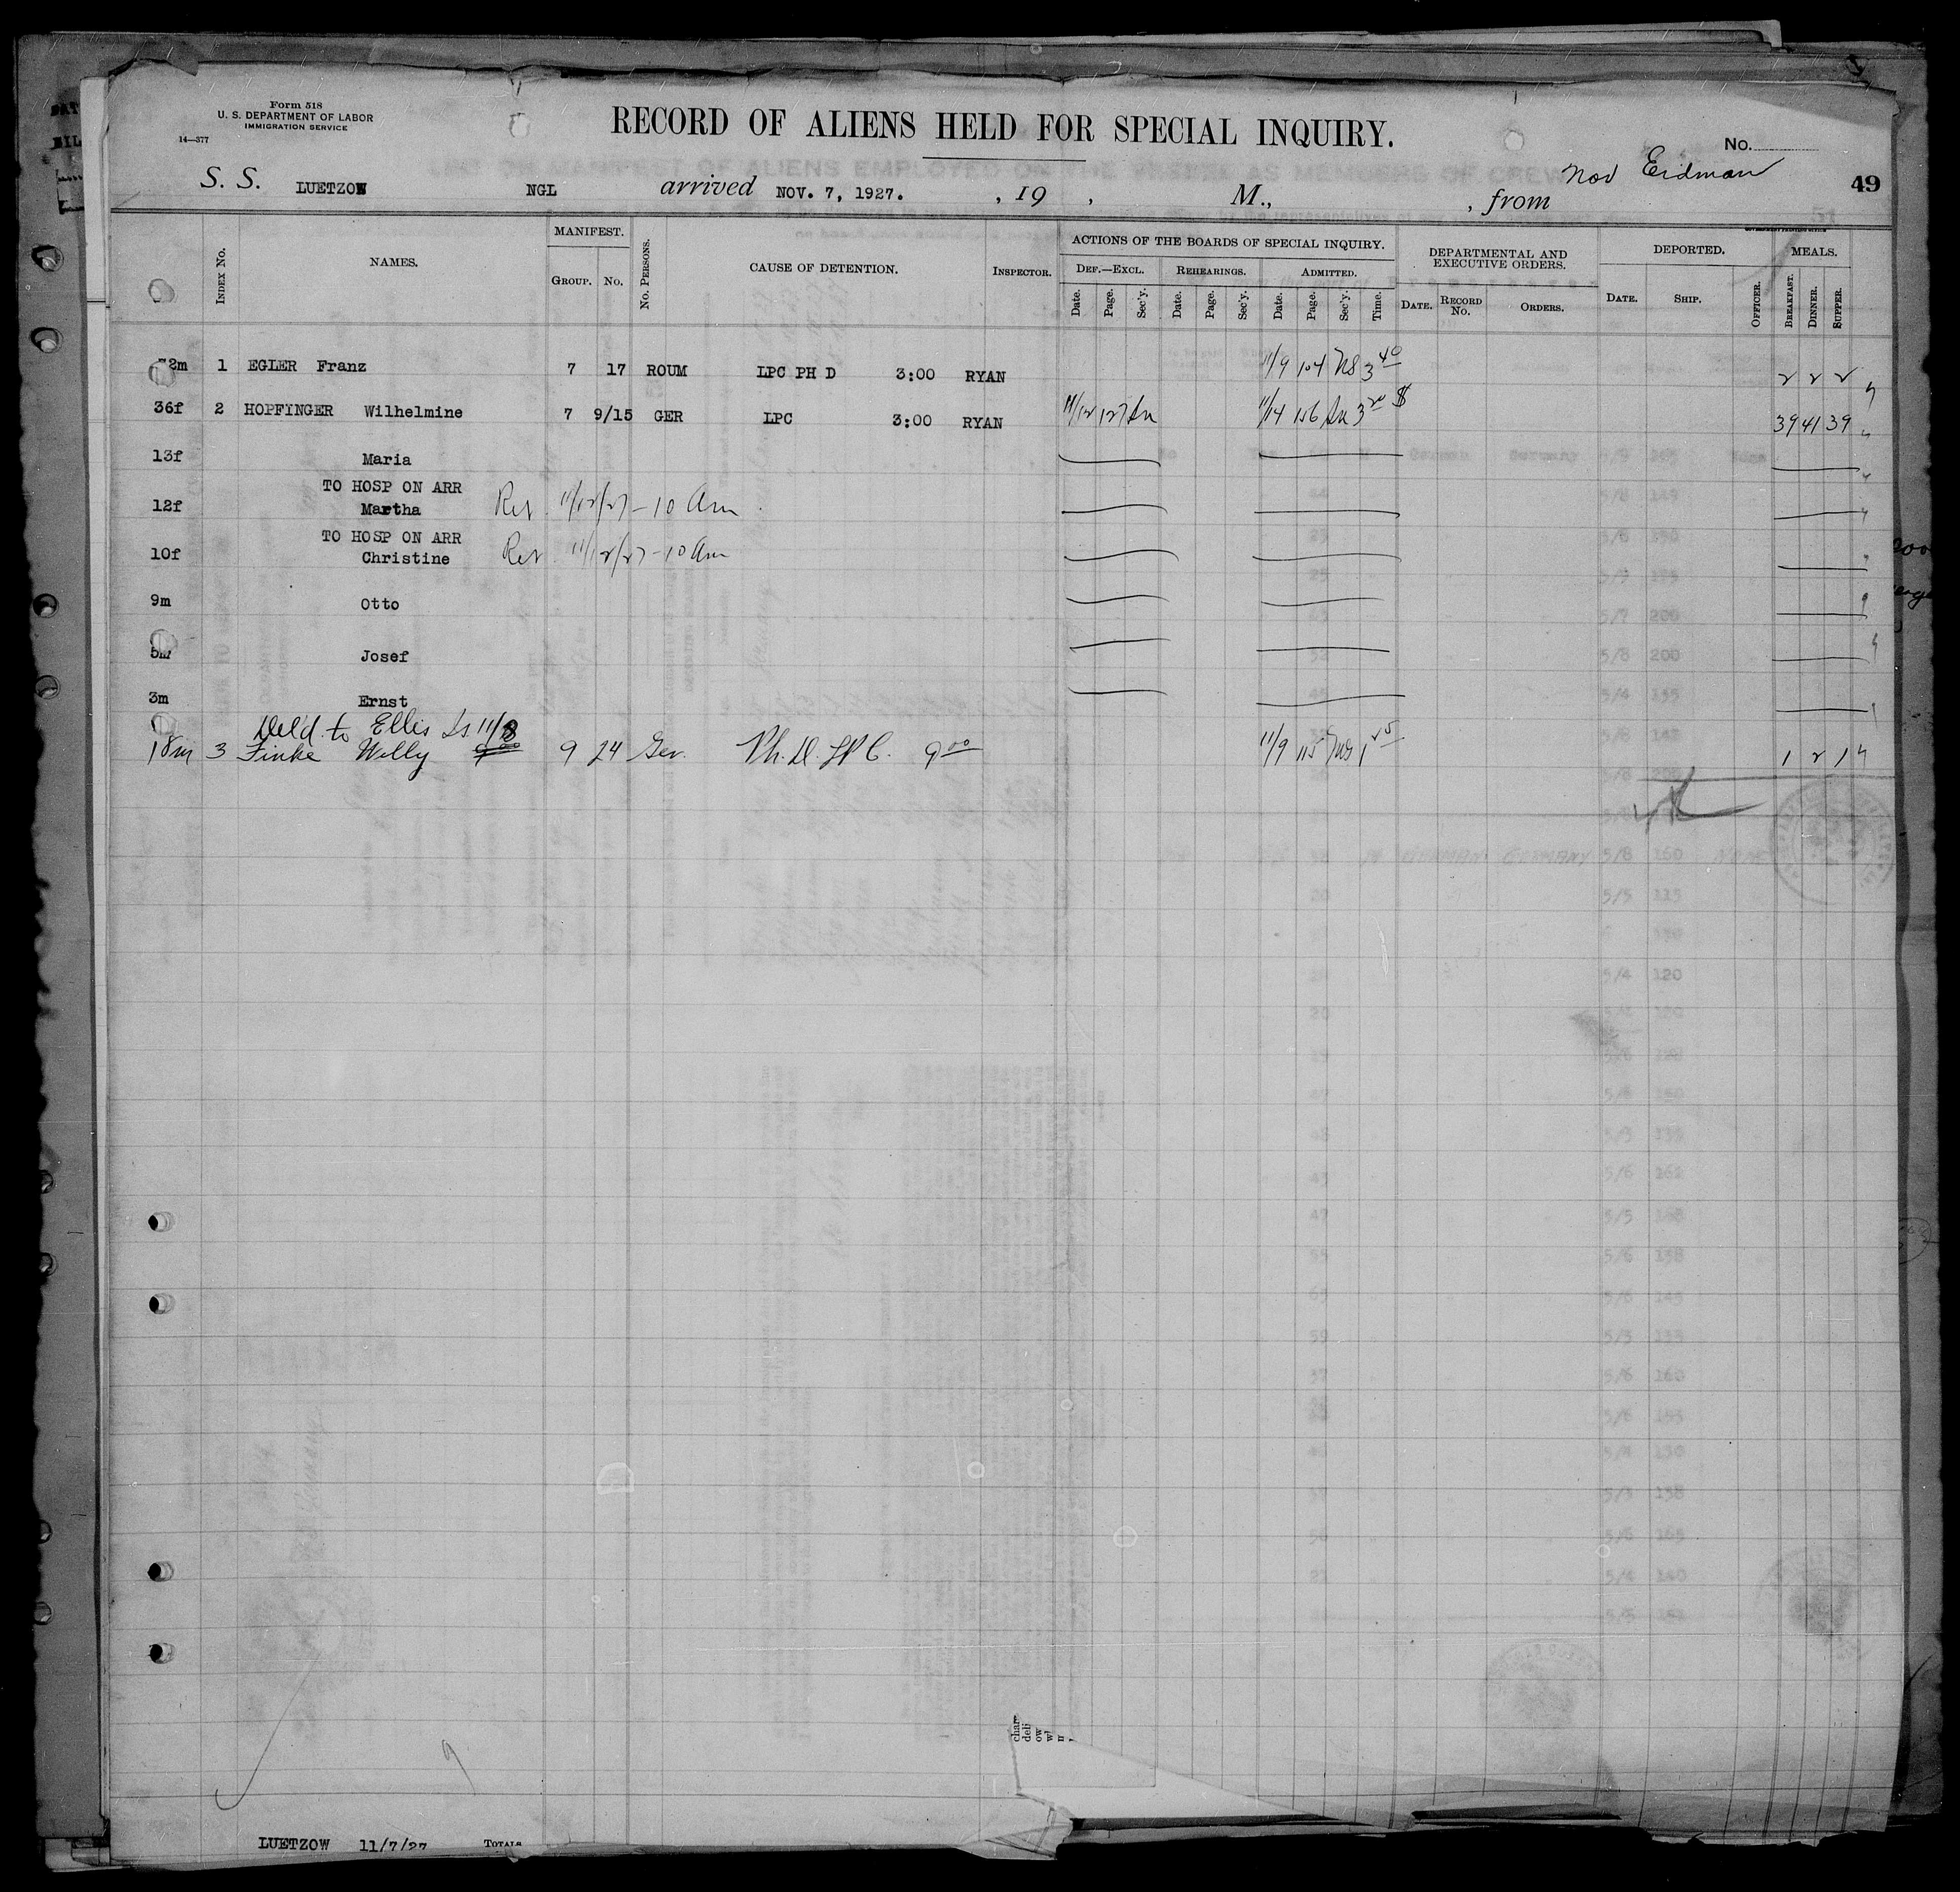 Form 518
U. S. DEPARTMENT OF LABOR
IMMIGRATION SERVICE
14—377
RECORD OF ALIENS HELD FOR SPECIAL INQUIRY.
No.
S. S. LUETZOW NGL arrived NOV. 7, 1927. , 19 , M., , from
Nov Eidman
49
INDEX No. NAMES. MANIFEST. GROUP. No. No. PERSONS. CAUSE OF DETENTION. INSPECTOR.
ACTIONS OF THE BOARDS OF SPECIAL INQUIRY.
DEF.—EXCL. REHEARINGS. ADMITTED.
Date. Page. Sec'y. Date. Page. Sec'y. Date. Page. Sec'y. Time.
DEPARTMENTAL AND EXECUTIVE ORDERS.
DATE. RECORD No. ORDERS.
DEPORTED.
DATE. SHIP. OFFICER.
MEALS.
BREAKFAST. DINNER. SUPPER.
2m 1 EGLER Franz 7 17 ROUM LPC PH D 3:00 RYAN 11/9 104 3 40 2 2 2
36f 2 HOPFINGER Wilhelmine 7 9/15 GER LPC 3:00 RYAN 11/12 127 11/14 156 3 20 39 41 39
13f Maria
TO HOSP ON ARR
12f Martha Ret 11/12/27 - 10 am
TO HOSP ON ARR
10f Christine Ret 11/12/27 - 10 am
9m Otto
5m Josef
3m Ernst
Del'd. to Ellis Is 11/8
18m 3 Finke Willy 9 24 Ger. Ph. D. LPC. 9 00 11/9 115 1 2 1
char
deli
ow
LUETZOW 11/7/27 TOTALS